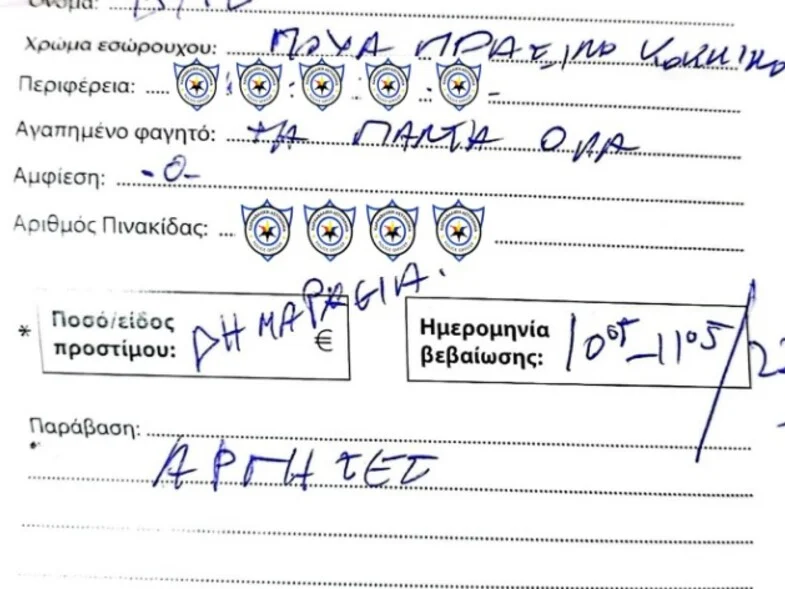 Όνομα:
Χρώμα εσώρουχου: ΠΟΥΑ ΠΡΑΣΙΝΟ ΚΟΚΚΙΝΟ
Περιφέρεια:
Αγαπημένο φαγητό: ΤΑ ΠΑΝΤΑ ΟΛΑ
Αμφίεση: -0-
Αριθμός Πινακίδας:
* Ποσό/είδος προστίμου: ΔΗΜΑΡΧΕΙΑ. €
Ημερομηνία βεβαίωσης: 10 05 - 11 05 /
Παράβαση:
ΑΡΓΗΣΕΣ